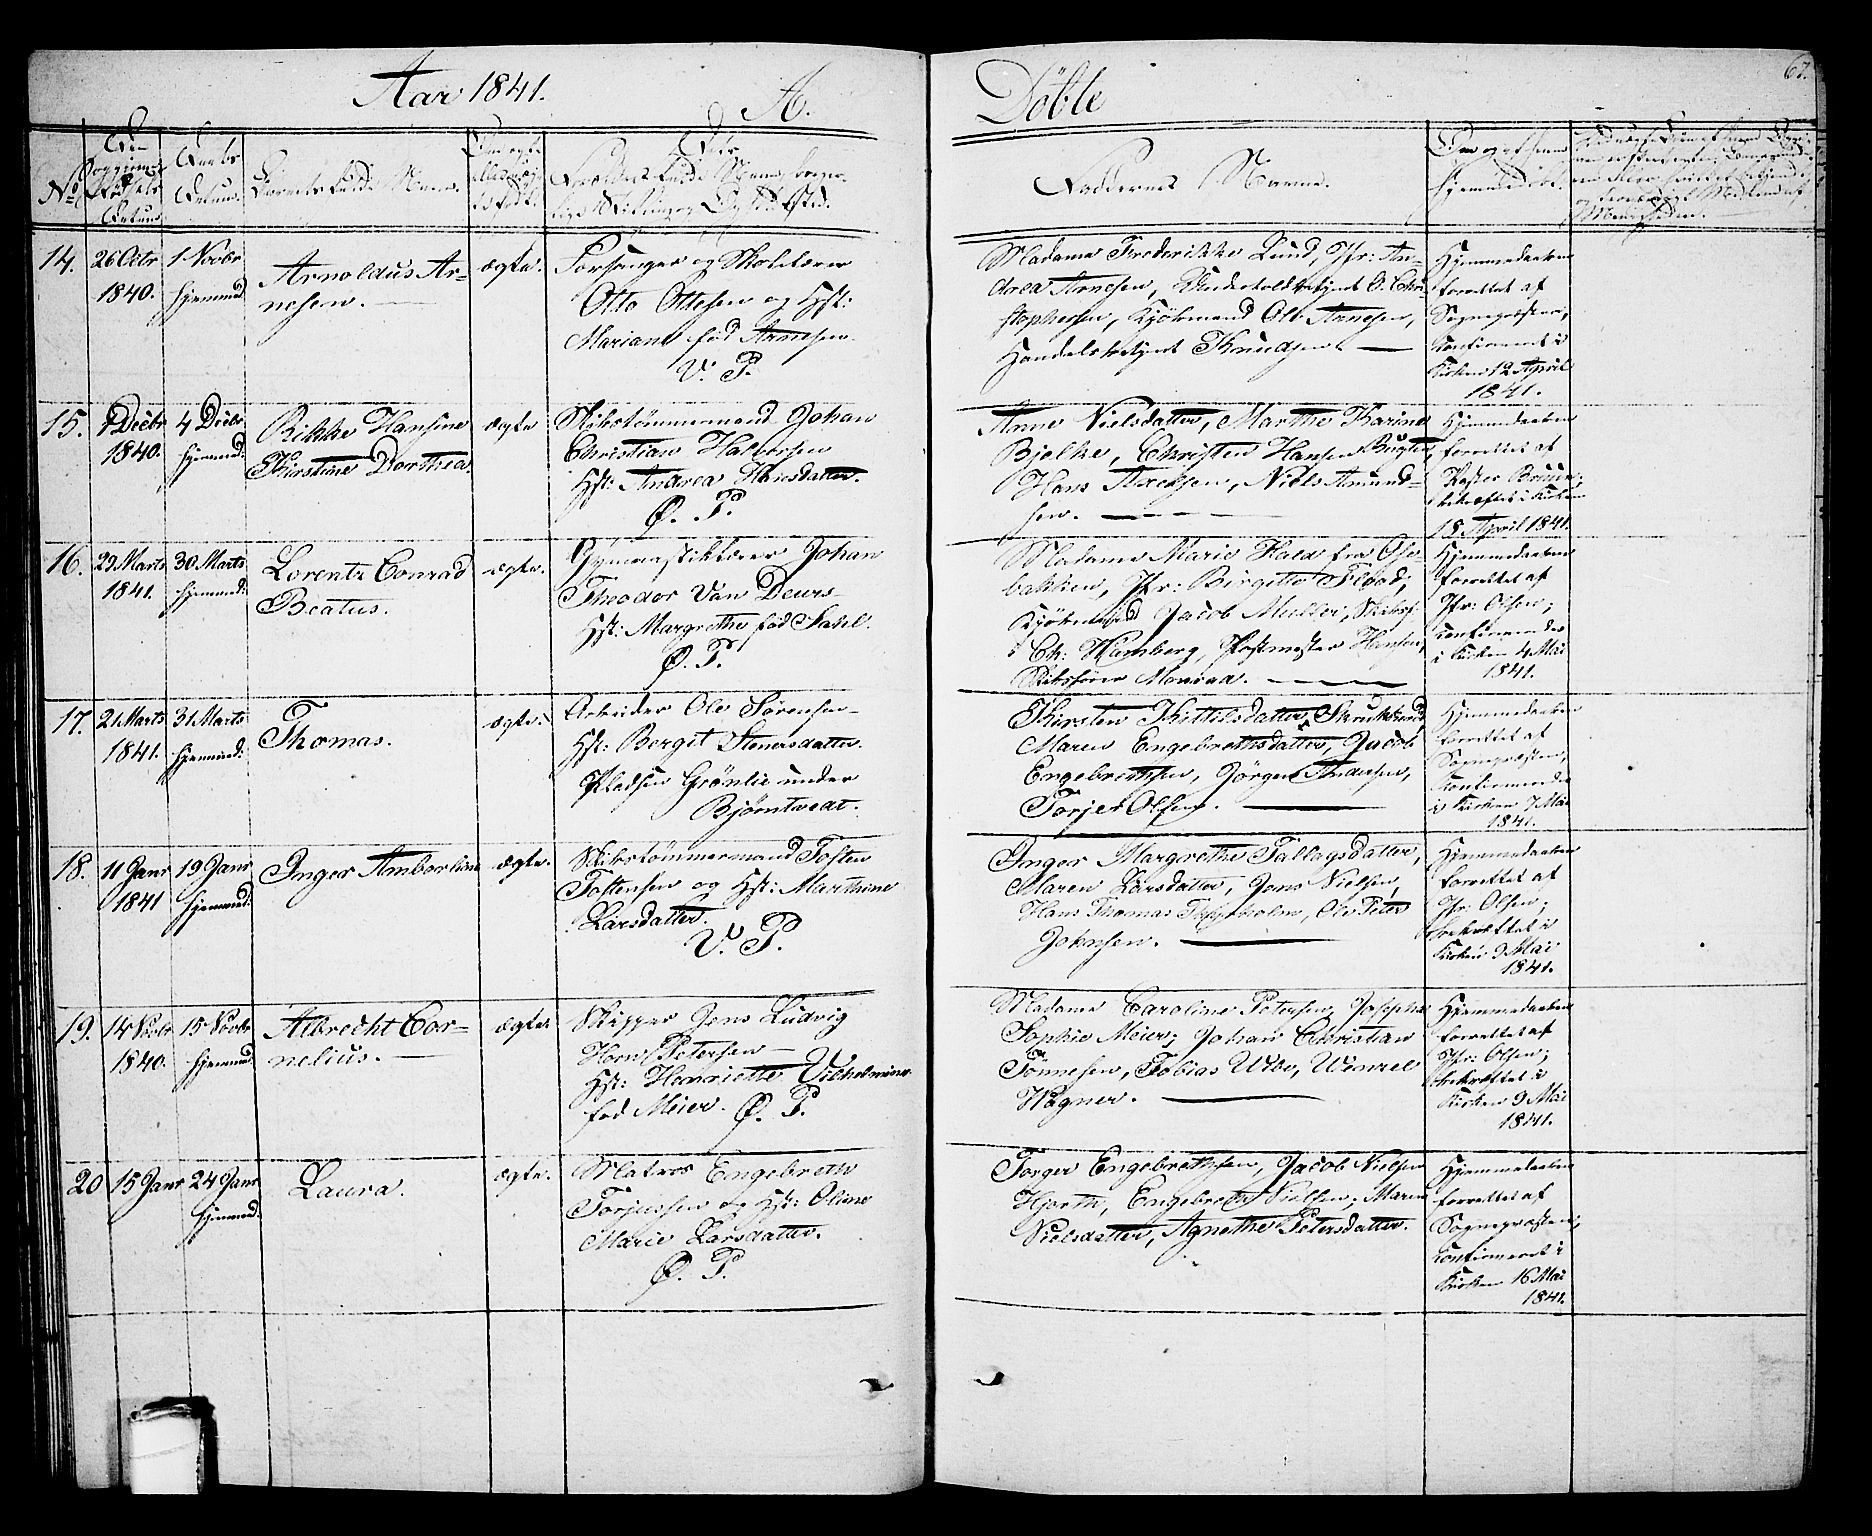 Aar 1841.
A.
Døbte
67.
No
Daabs
Datum.
Barnets fulde Navn.
Faddernes Navne.
14.
26 Octr
1840.
1 Novbr
hjemmed.
Arnoldus Ar-
nesen.
ægte.
Forsanger og Skolelærer
Otto Ottesen og Hst:
Mariane fød Arnesen.
V. P.
Madame Frederikke Lund, Jfr: An-
drea Arnesen, Underfoldbetjent O. Chri-
stophersen, Kjöbmand Ole Arnesen,
Handelsbetjent Knudsen.
Hjemmedaaben
forrettet af
Sognepræsten;
Confirmeret i
Kirken 12 April
1841.
15.
1 Decbr
1840.
4 Decbr
hjemmed:
Rikke Hansine
Kirstine Dorthea.
ægte
Skibstømmermand Johan
Christian Halvorsen
Hst: Andrea Hansdatter.
Ø. P.
Anne Nielsdatter, Marthe Karine
Bjelke, Christen Hansen Bugten,
Hans Axelsen, Niels Amund-
sen.
Hjemmedaaben
forrettet af
Pastor Bruun;
bekræftet i Kirken
18 April 1841.
16.
29 Marts
1841.
30 Marts
hjemmed:
Lorentz Conrad
Beatus.
ægte.
Gymnastiklærer Johan
Theodor Van Deurs
Hst: Margrethe fød Sahl.
Ø. P.
Madame Marie Hald fra Ose-
bakken, Jfr: Birgitte Flood;
Kjöbmand Jacob Muller, Skibsf:
Ch: Hamberg, Postmester Hansen,
Skibsfører Monrad.
Hjemmedaaben
forrettet af
Jfr: Olsen;
Confirmeret
i Kirken 4 Mai
1841.
17.
21 Marts
1841.
31 Marts
hjemmed:
Thomas.
ægte.
Arbeider Ole Sörensen
Hst: Bergit Stenersdatter.
Pladsen Grönlie under
Bjørntvedt.
Kirsten Kittilsdatter Skrukkerud
Maren Engebrethsdatter, Jacob
Engebrethsen, Jörgen Andersen,
Torjer Olsen.
Hjemmedaaben
forrettet af
Sognepræsten,
Confirmeret
i Kirken 7 Mai
1841.
18.
11 Janr
1841
19 Janr
hjemmed:
Inger Amborline
ægte.
Skibstömmermand Tosten
Tostensen og Hst: Marthine
Larsdatter.
V. P.
Inger Margrethe Tallagsdatter,
Maren Larsdatter, Jens Nielsen,
Hans Thomas Trypeholm, Ole Peter
Johnsen.
Hjemmedaaben
forrettet af
Jfr: Olsen;
bekræftet i
Kirken 9 Mai
1841.
19.
14 Novbr
1840.
15 Novbr
hjemmed:
Albrecht Cor-
nelius.
ægte.
Skipper Jens Ludvig
Horn Petersen
Hst: Henriette Vilhelmine
fød Meier. Ø. P.
Madame Caroline Petersen, Josepha
Sophie Meier; Johan Christian
Tönnesen, Tobias Wibe, Wenzel
Wagner.
Hjemmedaaben
forrettet af
Jfr: Olsen;
bekræftet i
Kirken 9 Mai
1841.
20
15 Janr
24 Janr
hjemmed:
Laura.
ægte.
Matros Engebreth
Torjussen og Hst: Oline
Marie Larsdatter.
Ø. P.
Torger Engebrethsen, Jacob Nielsen
Hjorth, Engebreth Nielsen; Maren
Nielsdatter, Agnethe Petersdatter.
Hjemmedaaben
forrettet af
Sognepræsten;
Confirmeret i
Kirken 16 Mai
1841.